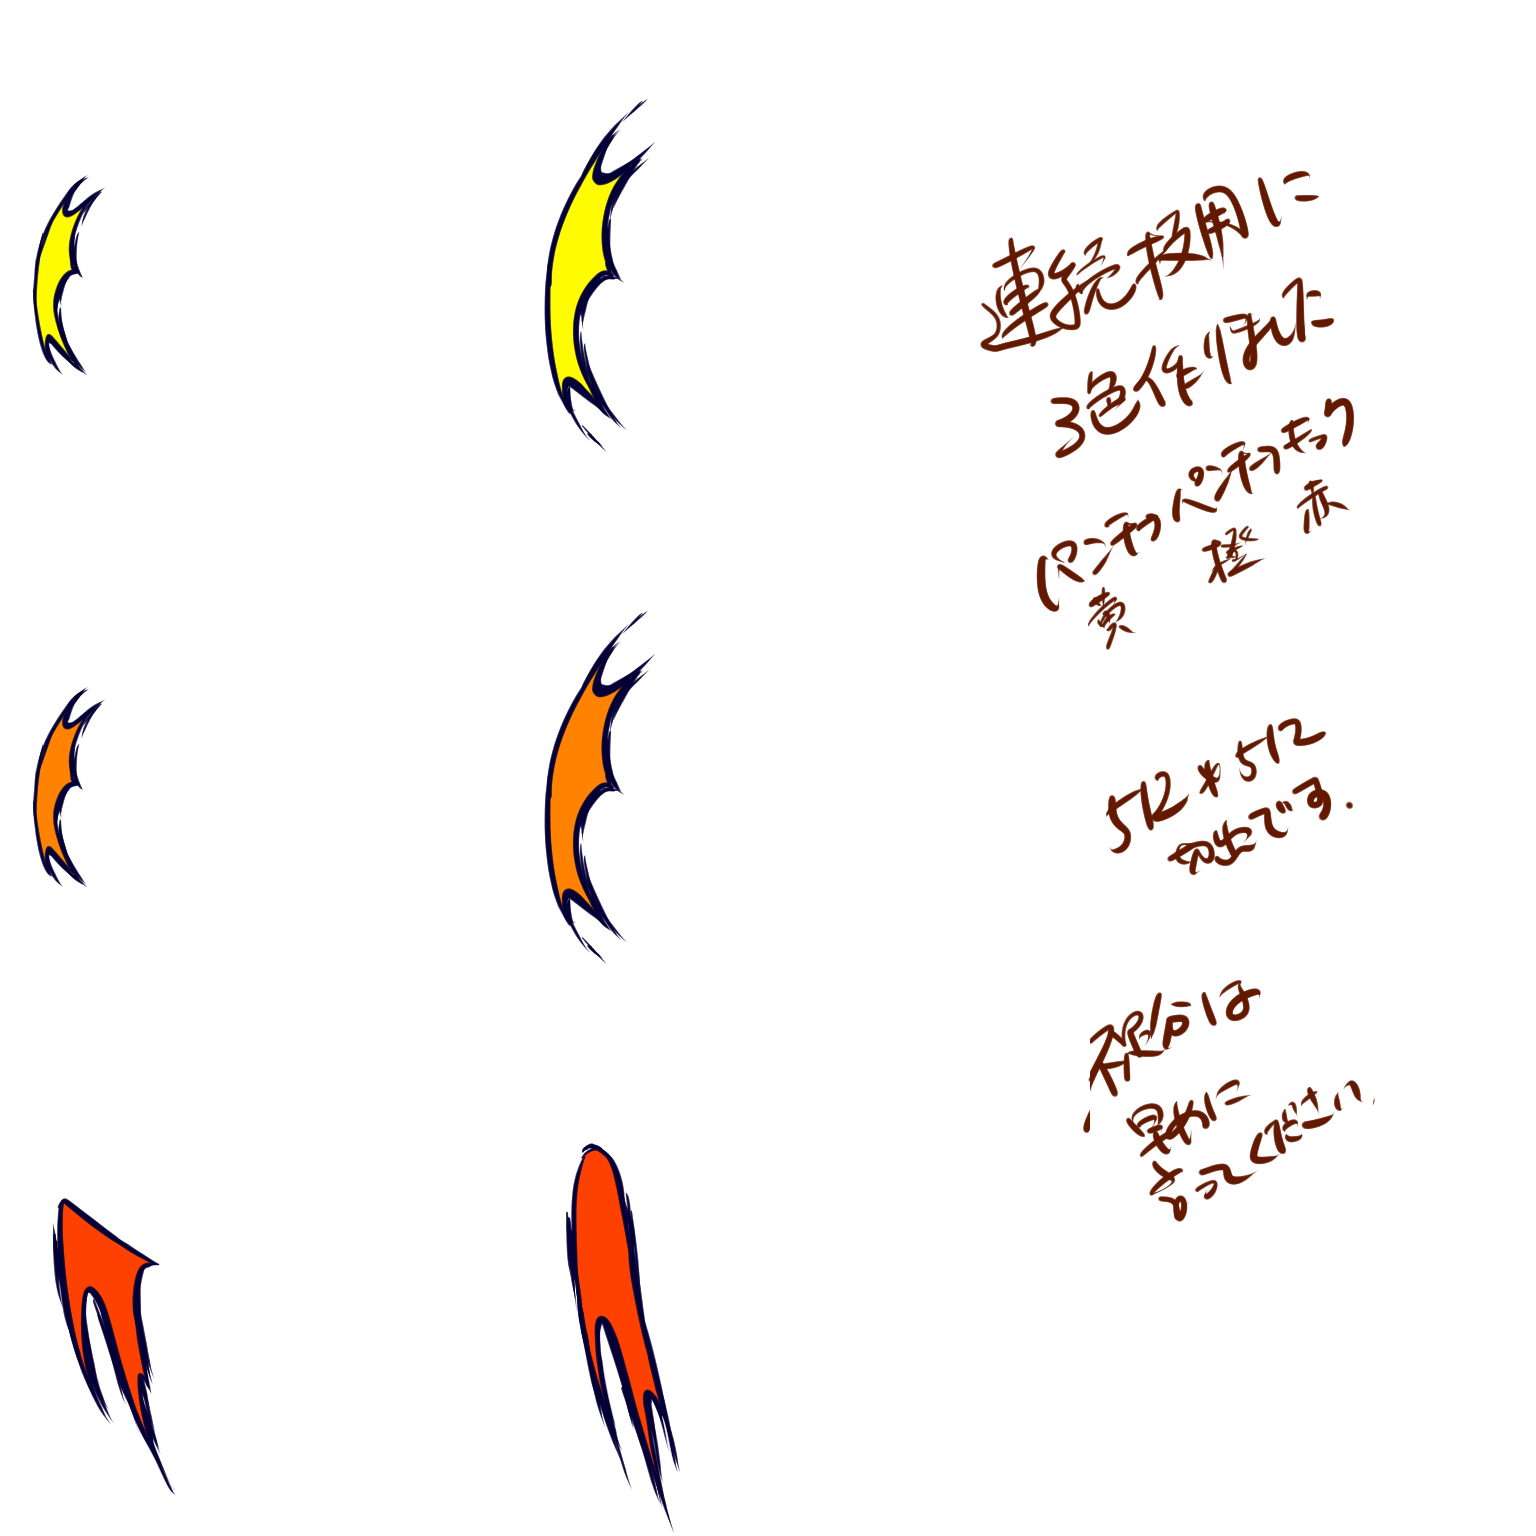 連続技用に
3色作りました
(パンチっパンチっキック
黄 橙 赤
512*512
切出です.
余分は
早めに
言ってください.